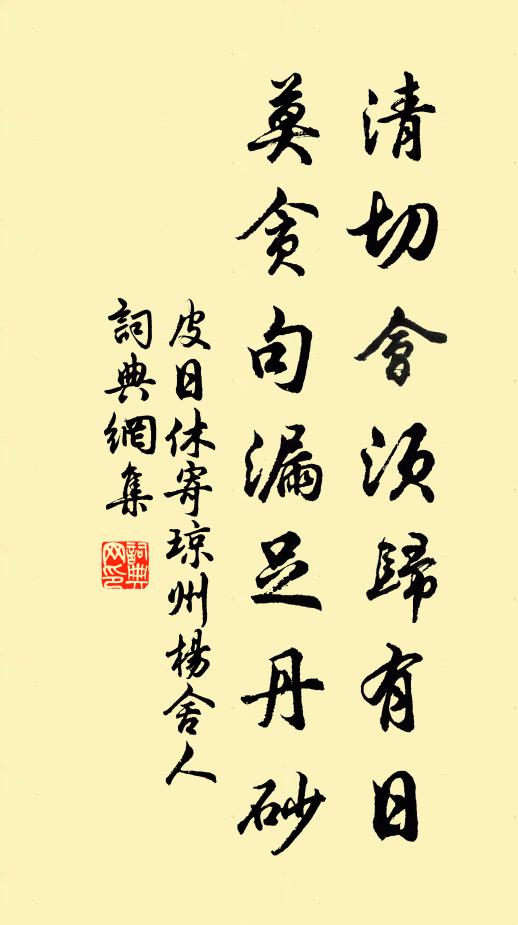 清切會須歸有日
莫貪句漏足丹砂
皮日休寄琼州楊舍人
詞典網集
詞典網印